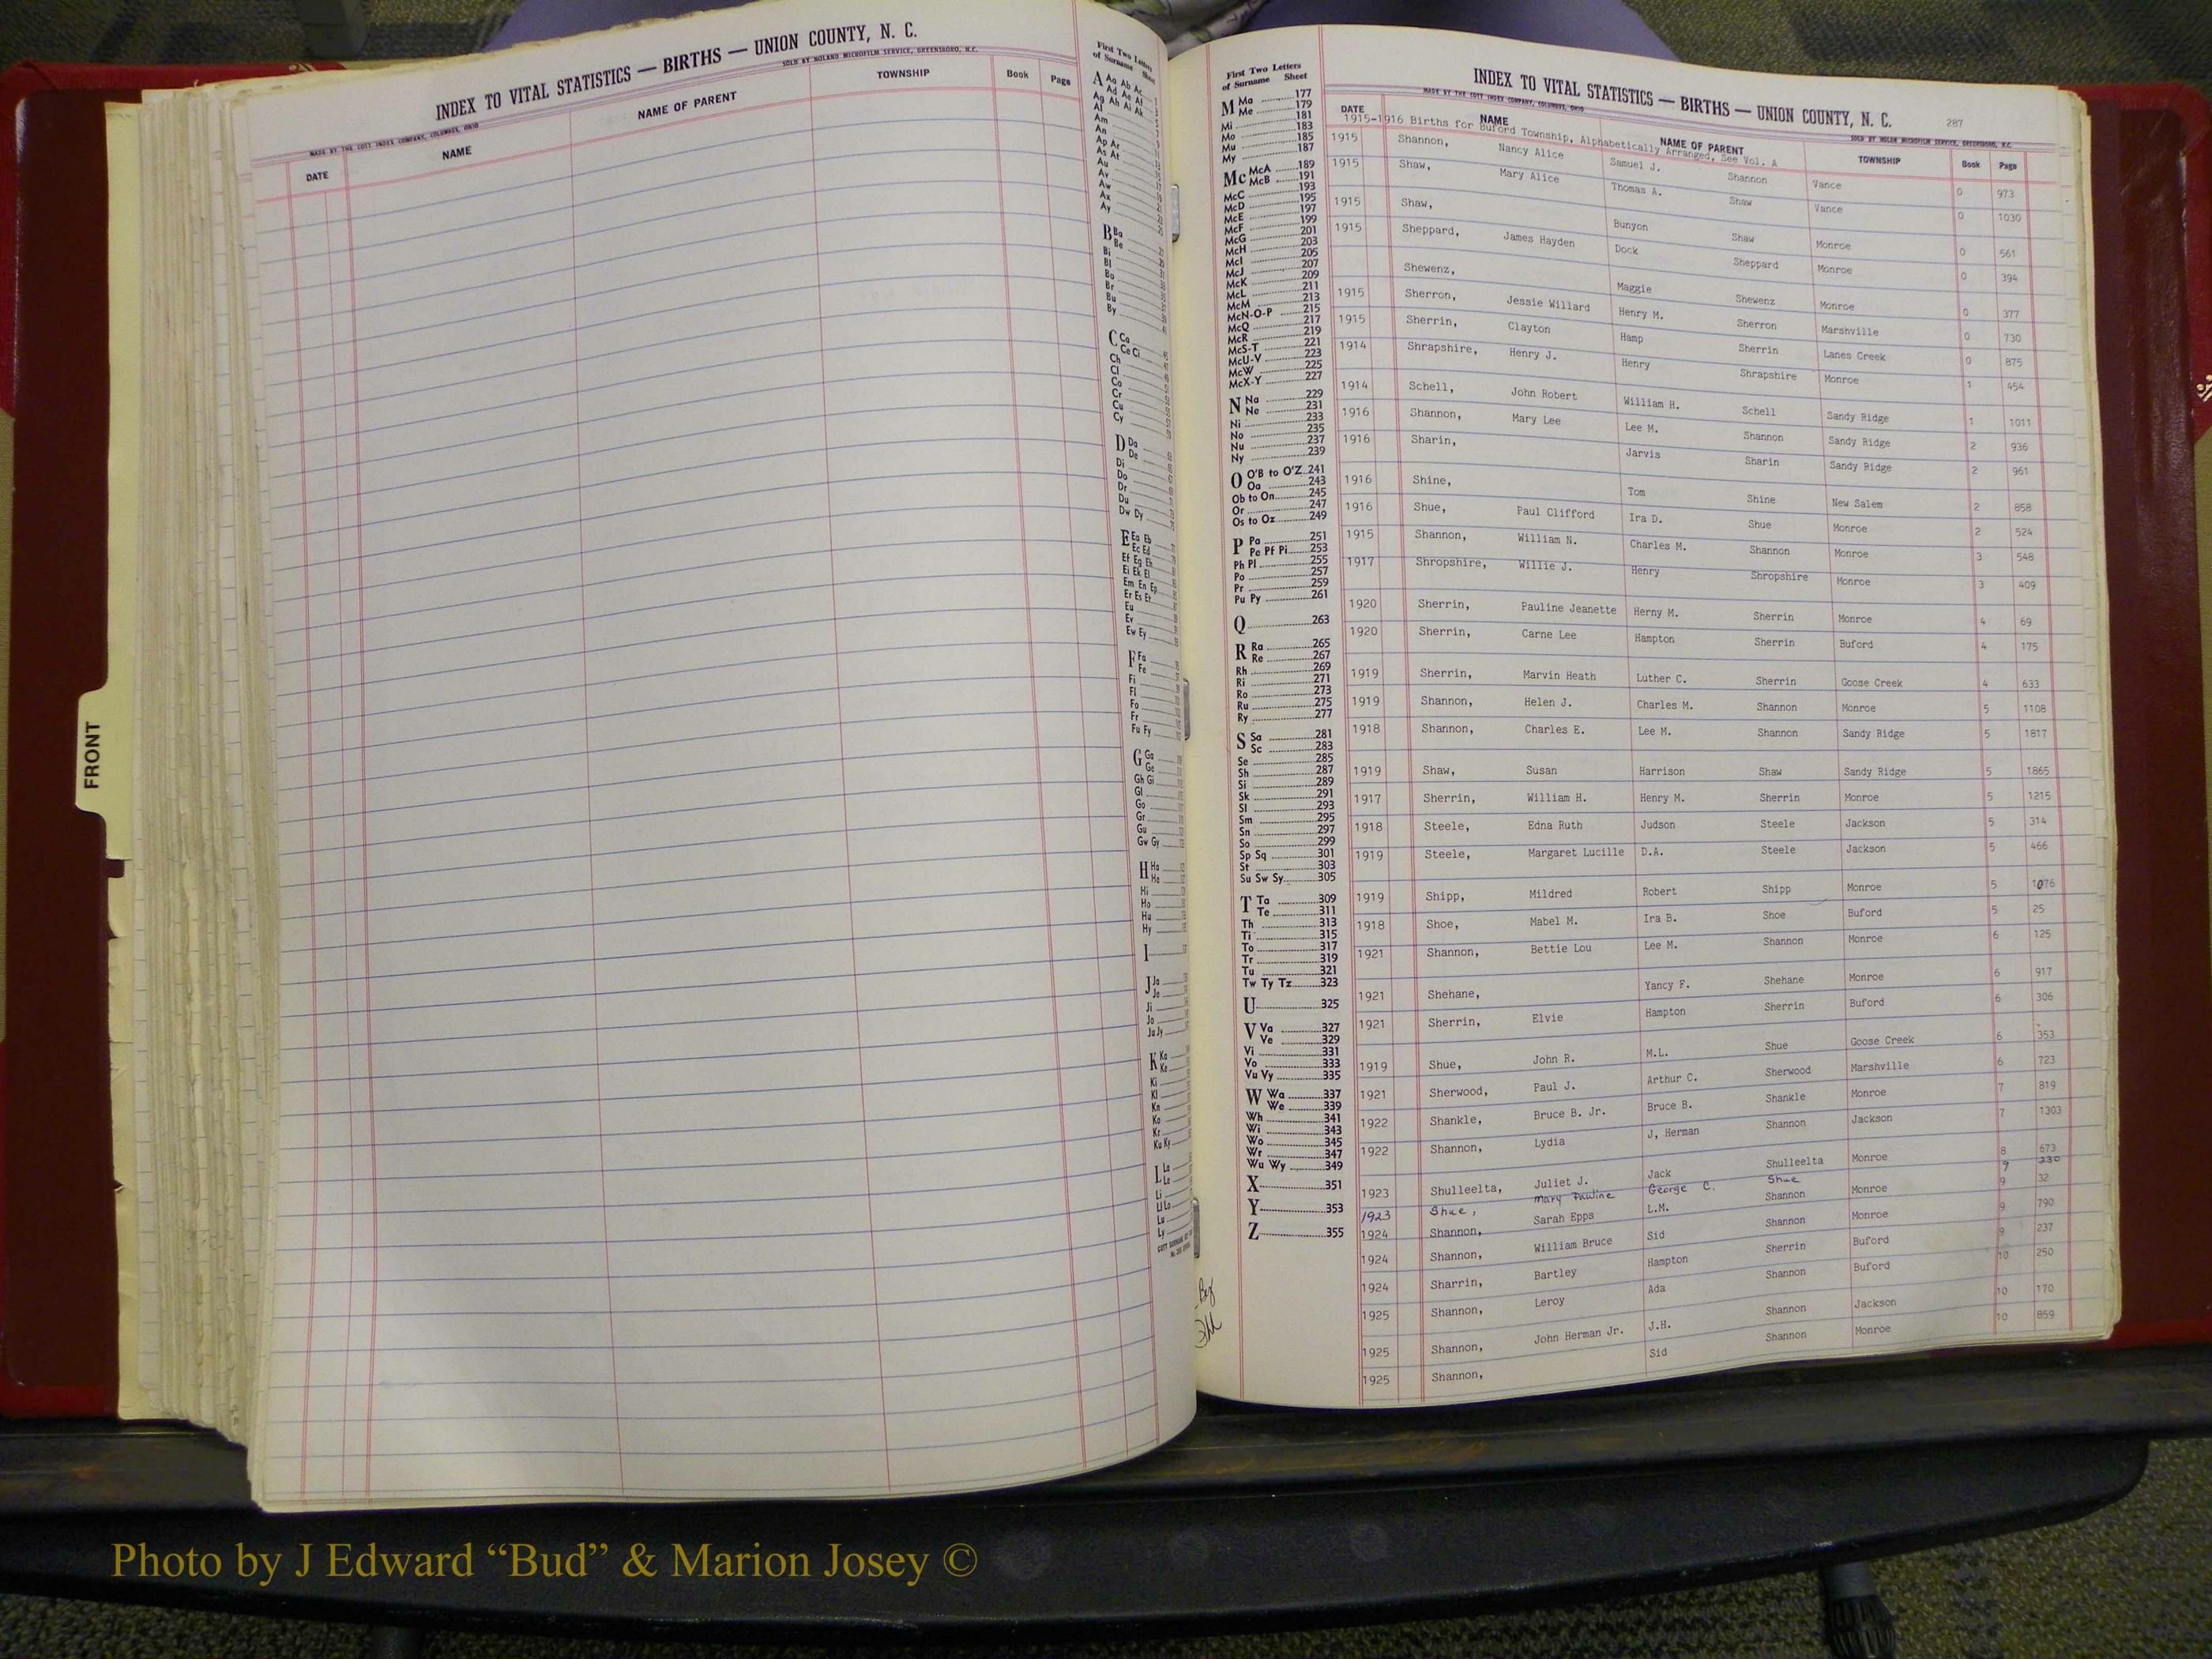 INDEX TO VITAL STATISTICS — BIRTHS — UNION COUNTY, N. C.
MADE BY THE COTT INDEX COMPANY, COLUMBUS, OHIO SOLD BY NOLAND MICROFILM SERVICE, GREENSBORO, N.C.
DATE NAME NAME OF PARENT TOWNSHIP Book Page
First Two Letters
of Surname Sheet
A Aa Ab Ac
Ad Ae Af
Ag Ah Ai Ak
Al
Am
An
Ap Ar
As At
Au
Av
Aw
Ax
Ay
B Ba
Be
Bi
Bl
Bo
Br
Bu
By
C Ca
Ce Ci
Ch
Cl
Co
Cr
Cu
Cy
D Da
De
Di
Do
Dr
Du
Dw Dy
E Ea Eb
Ec Ed
Ef Eg Eh
Ei Ek El
Em En Ep
Er Es Et
Eu
Ev
Ew Ey
F Fa
Fe
Fi
Fl
Fo
Fr
Fu Fy
G Ga
Ge
Gh Gi
Gl
Go
Gr
Gu
Gw Gy
H Ha
He
Hi
Ho
Hu
Hy
I
J Ja
Je
Ji
Jo
Ju Jy
K Ka
Ke
Ki
Kl
Kn
Ko
Kr
Ku Ky
L La
Le
Li
Ll Lo
Lu
Ly
FRONT
First Two Letters
of Surname Sheet
M Ma 177
Me 179
Mi 181
Mo 183
Mu 185
My 187
Mc McA 189
McB 191
McC 193
McD 195
McE 197
McF 199
McG 201
McH 203
McI 205
McJ 207
McK 209
McL 211
McM 213
McN-O-P 215
McQ 217
McR 219
McS-T 221
McU-V 223
McW 225
McX-Y 227
N Na 229
Ne 231
Ni 233
No 235
Nu 237
Ny 239
O O'B to O'Z 241
Oa 243
Ob to On 245
Or 247
Os to Oz 249
P Pa 251
Pe Pf Pi 253
Ph Pl 255
Po 257
Pr 259
Pu Py 261
Q 263
R Ra 265
Re 267
Rh 269
Ri 271
Ro 273
Ru 275
Ry 277
S Sa 281
Sc 283
Se 285
Sh 287
Si 289
Sk 291
Sl 293
Sm 295
Sn 297
So 299
Sp Sq 301
St 303
Su Sw Sy 305
T Ta 309
Te 311
Th 313
Ti 315
To 317
Tr 319
Tu 321
Tw Ty Tz 323
U 325
V Va 327
Ve 329
Vi 331
Vo 333
Vu Vy 335
W Wa 337
We 339
Wh 341
Wi 343
Wo 345
Wr 347
Wu Wy 349
X 351
Y 353
Z 355
INDEX TO VITAL STATISTICS — BIRTHS — UNION COUNTY, N. C. 287
MADE BY THE COTT INDEX COMPANY, COLUMBUS, OHIO SOLD BY NOLAN MICROFILM SERVICE, GREENSBORO, N.C.
DATE NAME NAME OF PARENT TOWNSHIP Book Page
1915-1916 Births for Buford Township, Alphabetically Arranged, See Vol. A
1915 Shannon, Nancy Alice Samuel J. Shannon Vance 0 973
1915 Shaw, Mary Alice Thomas A. Shaw Vance 0 1030
1915 Shaw, Bunyon Shaw Monroe 0 561
1915 Sheppard, James Hayden Dock Sheppard Monroe 0 394
Shewenz, Maggie Shewenz Monroe 0 377
1915 Sherron, Jessie Willard Henry M. Sherron Marshville 0 730
1915 Sherrin, Clayton Hamp Sherrin Lanes Creek 0 875
1914 Shrapshire, Henry J. Henry Shrapshire Monroe 1 454
1914 Schell, John Robert William H. Schell Sandy Ridge 1 1011
1916 Shannon, Mary Lee Lee M. Shannon Sandy Ridge 2 936
1916 Sharin, Jarvis Sharin Sandy Ridge 2 961
1916 Shine, Tom Shine New Salem 2 858
1916 Shue, Paul Clifford Ira D. Shue Monroe 2 524
1915 Shannon, William N. Charles M. Shannon Monroe 3 548
1917 Shropshire, Willie J. Henry Shropshire Monroe 3 409
1920 Sherrin, Pauline Jeanette Herny M. Sherrin Monroe 4 69
1920 Sherrin, Carne Lee Hampton Sherrin Buford 4 175
1919 Sherrin, Marvin Heath Luther C. Sherrin Goose Creek 4 633
1919 Shannon, Helen J. Charles M. Shannon Monroe 5 1108
1918 Shannon, Charles E. Lee M. Shannon Sandy Ridge 5 1817
1919 Shaw, Susan Harrison Shaw Sandy Ridge 5 1865
1917 Sherrin, William H. Henry M. Sherrin Monroe 5 1215
1918 Steele, Edna Ruth Judson Steele Jackson 5 314
1919 Steele, Margaret Lucille D.A. Steele Jackson 5 466
1919 Shipp, Mildred Robert Shipp Monroe 5 1076
1918 Shoe, Mabel M. Ira B. Shoe Buford 5 25
1921 Shannon, Bettie Lou Lee M. Shannon Monroe 6 125
1921 Shehane, Yancy F. Shehane Monroe 6 917
1921 Sherrin, Elvie Hampton Sherrin Buford 6 306
1919 Shue, John R. M.L. Shue Goose Creek 6 353
1921 Sherwood, Paul J. Arthur C. Sherwood Marshville 6 723
1922 Shankle, Bruce B. Jr. Bruce B. Shankle Monroe 7 819
1922 Shannon, Lydia J, Herman Shannon Jackson 7 1303
1923 Shulleelta, Juliet J. Jack Shulleelta Monroe 8 673
1923 Shue, Mary Pauline George C. Shue 9 230
1924 Shannon, Sarah Epps L.M. Shannon Monroe 9 32
1924 Shannon, William Bruce Sid Shannon Monroe 9 790
1924 Sharrin, Bartley Hampton Sherrin Buford 9 237
1925 Shannon, Leroy Ada Shannon Buford 10 250
1925 Shannon, John Herman Jr. J.H. Shannon Jackson 10 170
1925 Shannon, Sid Shannon Monroe 10 859
Photo by J Edward “Bud” & Marion Josey ©